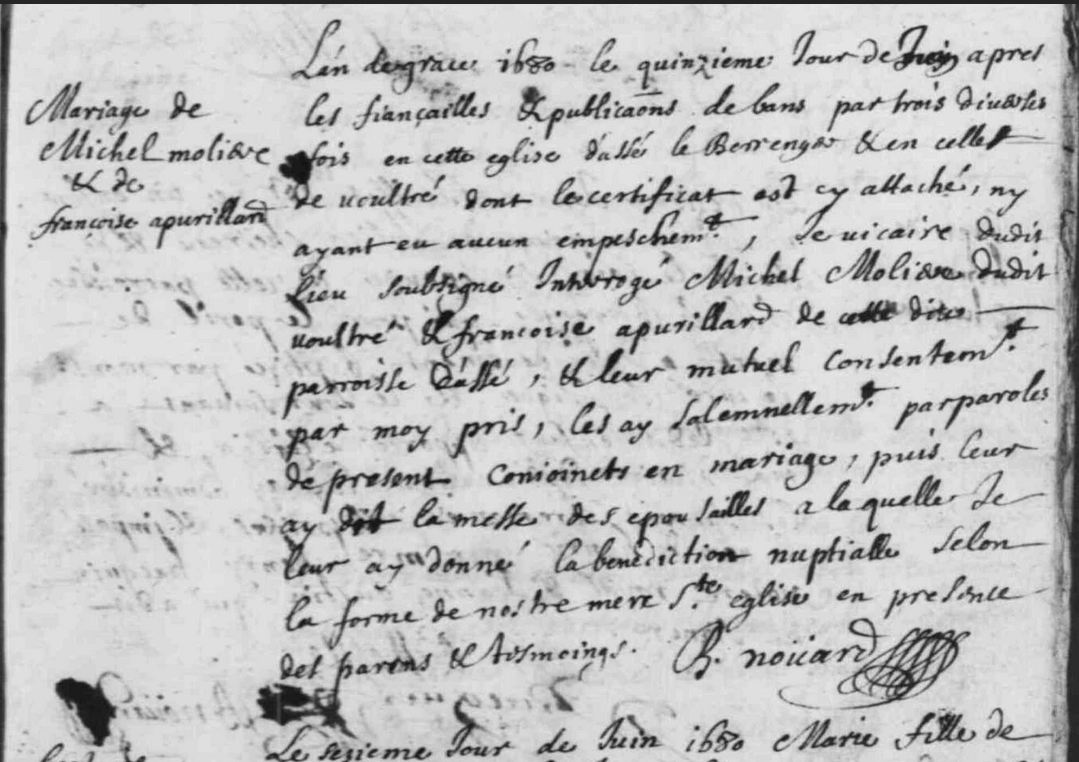 Mariage de
Michel moliere
& de
francoise apurillard
L'an de grace 1680 le quinzieme Jour de Juin apres
les fiançailles & publicaons de bans par trois diverses
fois en cette eglise d'assé le Berrenger & en celles
de voultré dont le certificat est cy attaché, ny
ayant eu aucun empeschemt, Je vicaire dudit
lieu soubsigné Interogé Michel Moliere dudit
voultré & francoise apurillard de cette dite
parroisse d'assé, & leur mutuel consentemt
par moy pris, les ay solemnellemt par paroles
de present conioincts en mariage, puis leur
ay dit la messe des epousailles a laquelle Je
leur ay donné la benediction nuptialle selon
la forme de nostre mere Ste eglise en presence
des parens & tesmoings. R. noüard
Le sezieme Jour de Juin 1680 Marie fille de